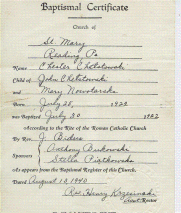 Baptismal Certificate
Church of
St. Mary
Reading Pa
Name Chester Chelstowski
Child of John Chelstowski
and Mary Nowotarska
Born July 28, 1922
was Baptized July 30 1922
According to the Rite of the Roman Catholic Church
By J.
Anthony
Sponsors
Stella Piątkowska
As appears from the Baptismal Register of this Church.
Dated August 10, 1940
Rev. Henry